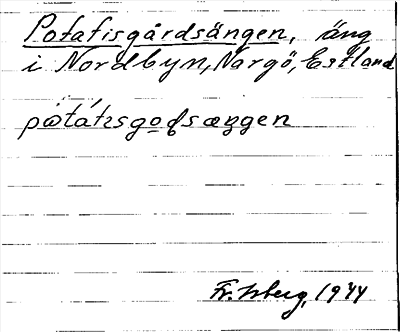 Potatisgårdsängen, äng
i Nordbyn, Nargö, Estland
pωtátısgo̲ɖsæŋgen
Fr. Isberg, 1944